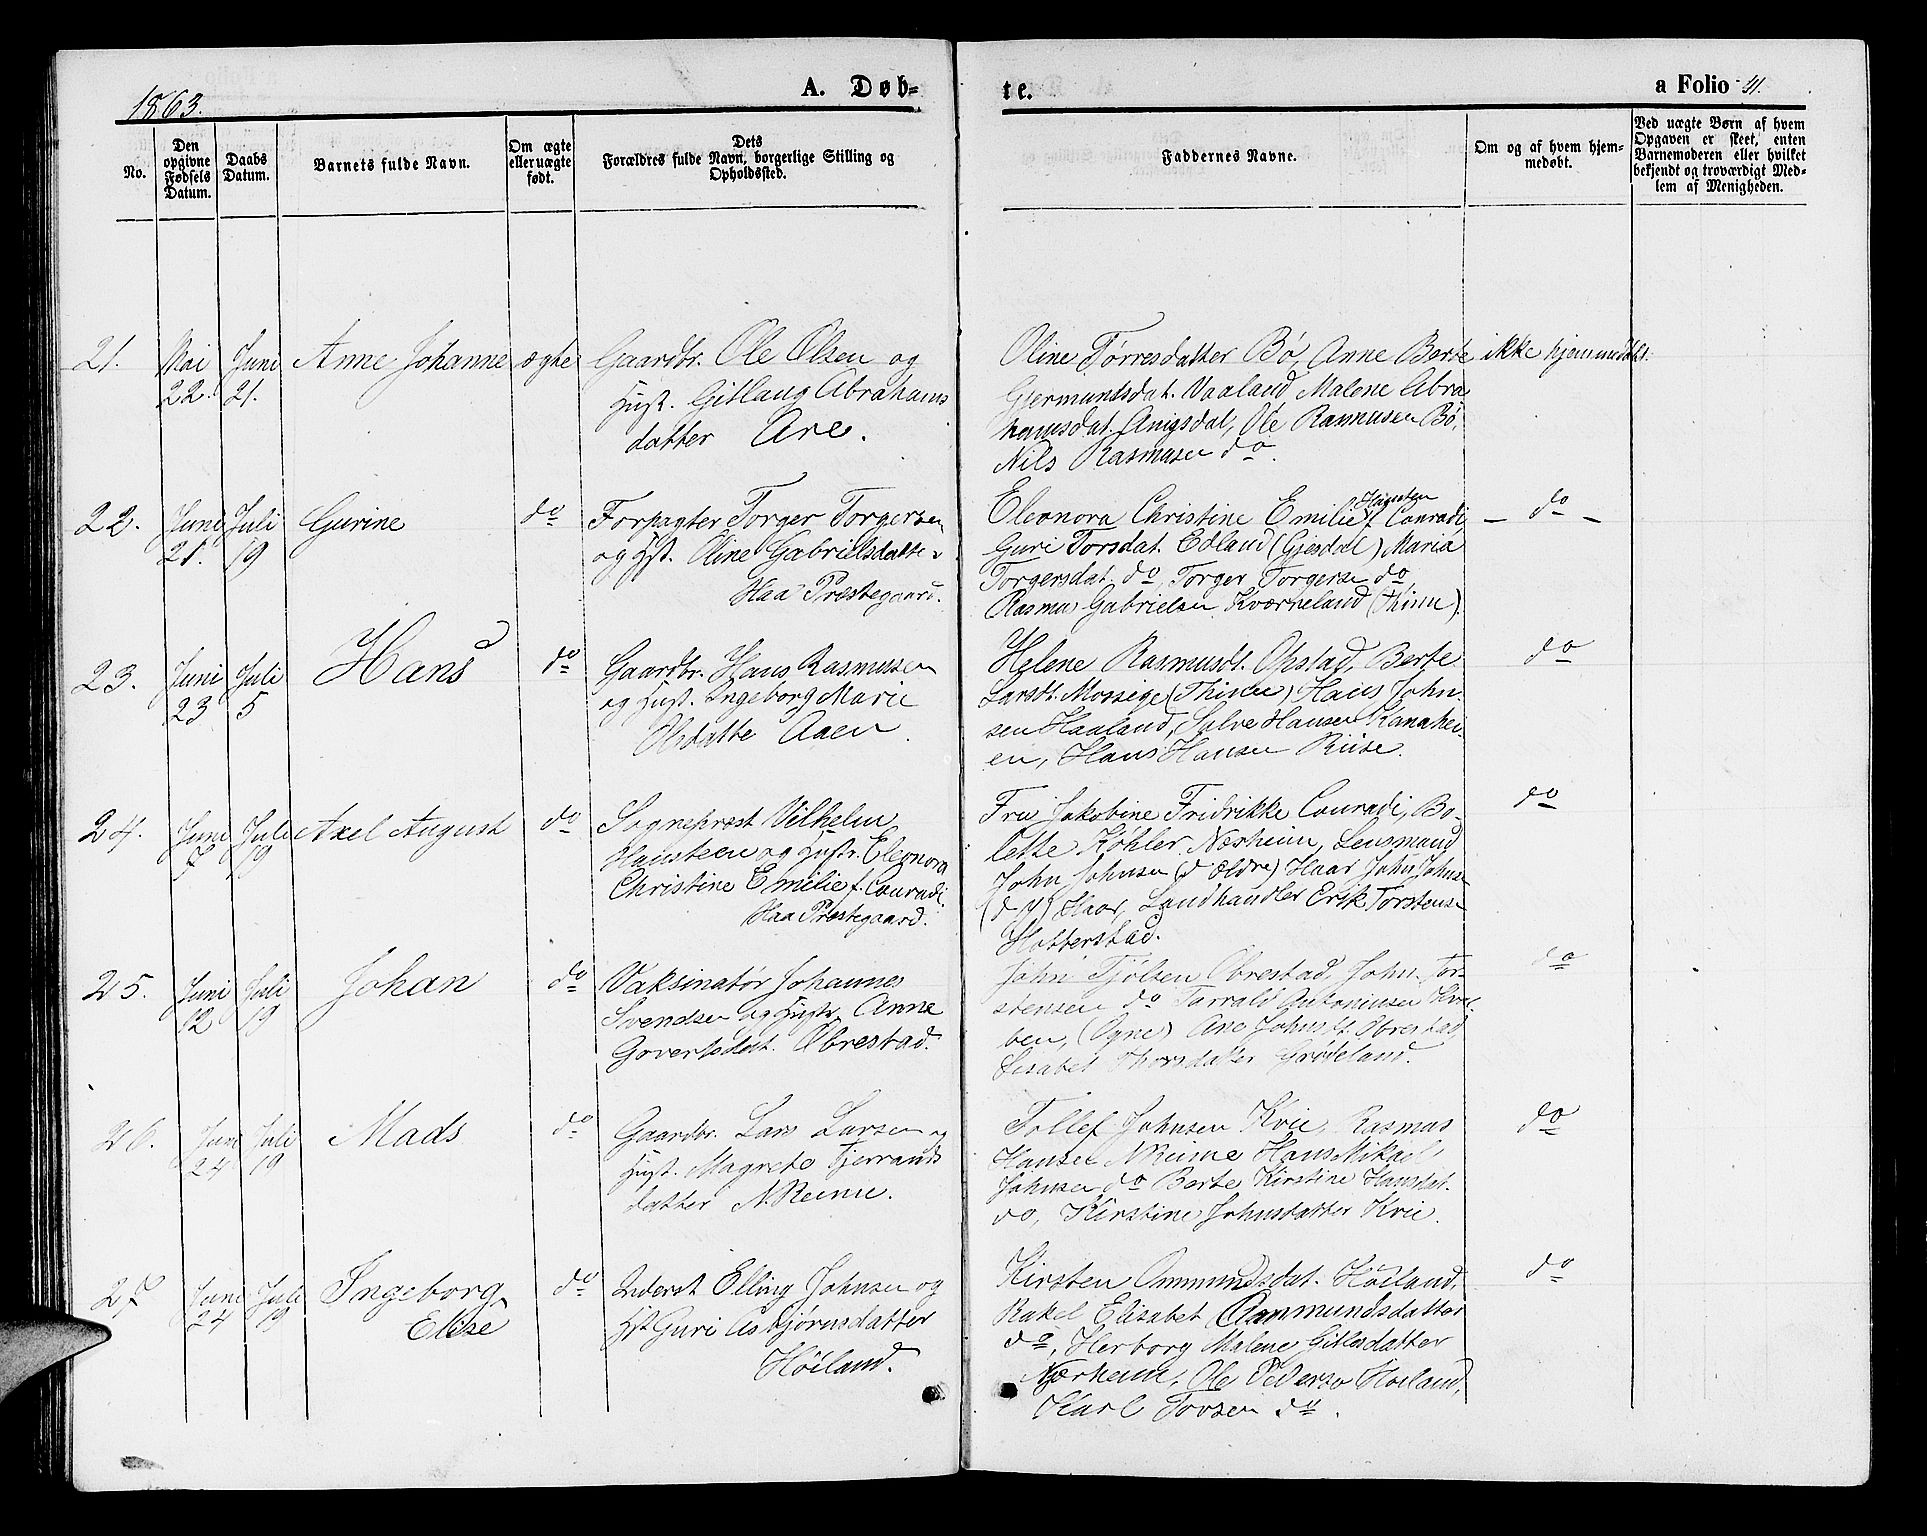 1863.
A. Døb-
te.
a Folio 41.
No.
Den opgivne Fødsels Datum.
Daabs Datum.
Barnets fulde Navn.
Om ægte eller uægte født.
Dets Forældres fulde Navn, borgerlige Stilling og Opholdssted.
Faddernes Navne.
Om og af hvem hjem-
medøbt.
Ved uægte Børn af hvem
Opgaven er skeet, enten
Barnemoderen eller hvilket
bekjendt og troværdigt Med-
lem af Menigheden.
21. Mai 22. Juni 21. Anne Johanne ægte
Gaardbr. Ole Olsen og
Hust. Gitlaug Abrahams
datter Are.
Oline Tørresdatter Bø, Anne Berte
Gjermundsdat. Vaaland Malene Abra
hamsdat. Anigsdal, Ole Rasmusen Bø,
Nils Rasmusen do.
ikke hjemmedøbt.
22. Juni 21. Juli 19 Gurine do
Forpagter Torger Torgersen
og Hst. Oline Gabrielsdatte.
Haa Præstegaard.
Hansteen
Eleonora Christine Emilie f. Conradi,
Guri Torsdat. Edland (Gjesdal) Maria
Torgersdat. do, Torger Torgerse do,
Rasmus Gabrielsen Kværneland (Thime)
- do -
23. Juni 23 Juli 5 Hans do
Gaardbr. Hans Rasmusen
og Hust. Ingeborg Marie
Olsdatte Aaen.
Helene Rasmusdt. Opstad, Berte
Larsdt. Mossige (Thime) Hans John-
sen Haaland, Salve Hansen Kanahei-
en, Hans Hansen Riise.
do
24. Juni 7 Juli 19 Axel August do
Sogneprest Vilhelm
Hansteen og Hustr. Eleonora
Christine Emilie f. Conradi.
Haa Præstegaard.
Fru Jakobine Fridrikke Conradi, Bo-
lette Köhler Nærheim, Lensmand
John Johnsen (d. Ældre) Haar John Johnse
(d. y) Haar, Landhandler Erik Torstense
Hotterstad.
do
25. Juni 12 Juli 19 Johan do
Vaksinatør Johannes
Svendsen og Hustr. Anne
Govertsdat. Obrestad.
John Tjølsen Obrestad, John Tor-
stensen do Tarrald Antoniusen
ben, (Ogne) Ane Johnsdt. Obrestad,
Lisabet Thorsdatter Grødeland.
do
26. Juni 24. Juli 19 Mads do
Gaardbr. Lars Larsen og
Hust. Magrete Fjerrands
datter N. Reime.
Tollef Johnsen Kvie, Rasmus
Hansen N Reime Hans Mikael
Johnsen do Berte Kirstine Hansdat.
do, Kirstine Johnsdatter Kvie.
do
27 Juni 24 Juli 19 Ingeborg
Elise do
Inderst Elling Johnsen og
Hst Guri Asbjørnsdatter
Höiland.
Kirsten Ommundsdat. Höiland,
Rakel Elisabet Ommundsdatter
do, Herborg Malene Gitlesdatter
Nærheim, Ole Pederse Höiland,
Karl Torsen do.
do